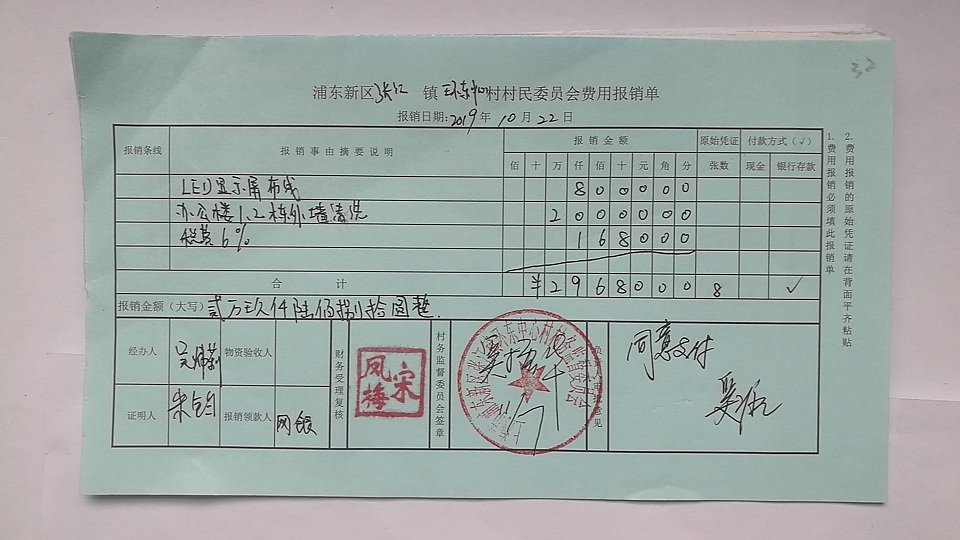 32
浦东新区张江镇环东中心村村民委员会费用报销单
报销日期:2019年10月22日
报销条线 报销事由摘要说明 报销金额 原始凭证 付款方式(√)
佰 十 万 仟 佰 十 元 角 分 张数 现金 银行存款
LED显示屏布线 8 0 0 0 0 0
办公楼1、2栋外墙清洗 2 0 0 0 0 0 0
税费6% 1 6 8 0 0 0
合计 ¥ 2 9 6 8 0 0 0 8 √
报销金额(大写) 贰万玖仟陆佰捌拾圆整
经办人 物资验收人
证明人 宋 报销领款人 网银
财务受理复核
宋凤梅
村务监督委员会签章
11/7
负责人审批意见
同意支付
1.费用报销必须填此报销单
2.费用报销的原始凭证请在背面平齐粘贴